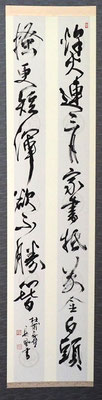 烽火連三月家書抵萬金白頭
搔更短渾欲不勝簪
杜甫詩
書